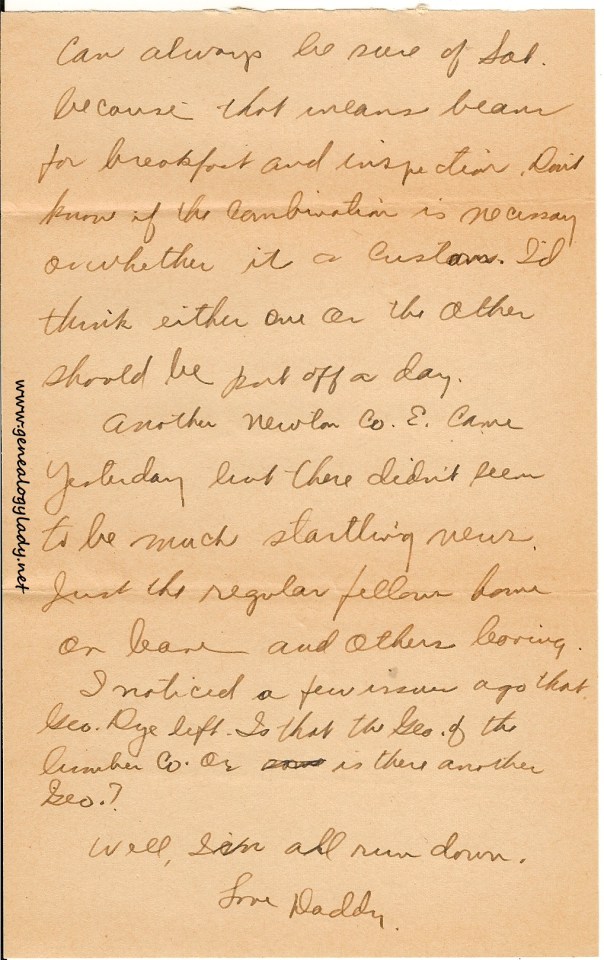 can always be sure of Sat.
because that means beans
for breakfast and inspection. Don't
know if the combination is necessary
or whether it a custom. I'd
think either one or the other
should be put off a day.
Another Newton Co. E. came
yesterday but there didn't seem
to be much startling news.
Just the regular fellows home
on leave and others leaving.
I noticed a few issues ago that
Geo. Dye left. Is that the Geo. of the
lumber Co. or is there another
Geo.?
Well, I'm all run down.
Love Daddy.
www.genealogylady.net